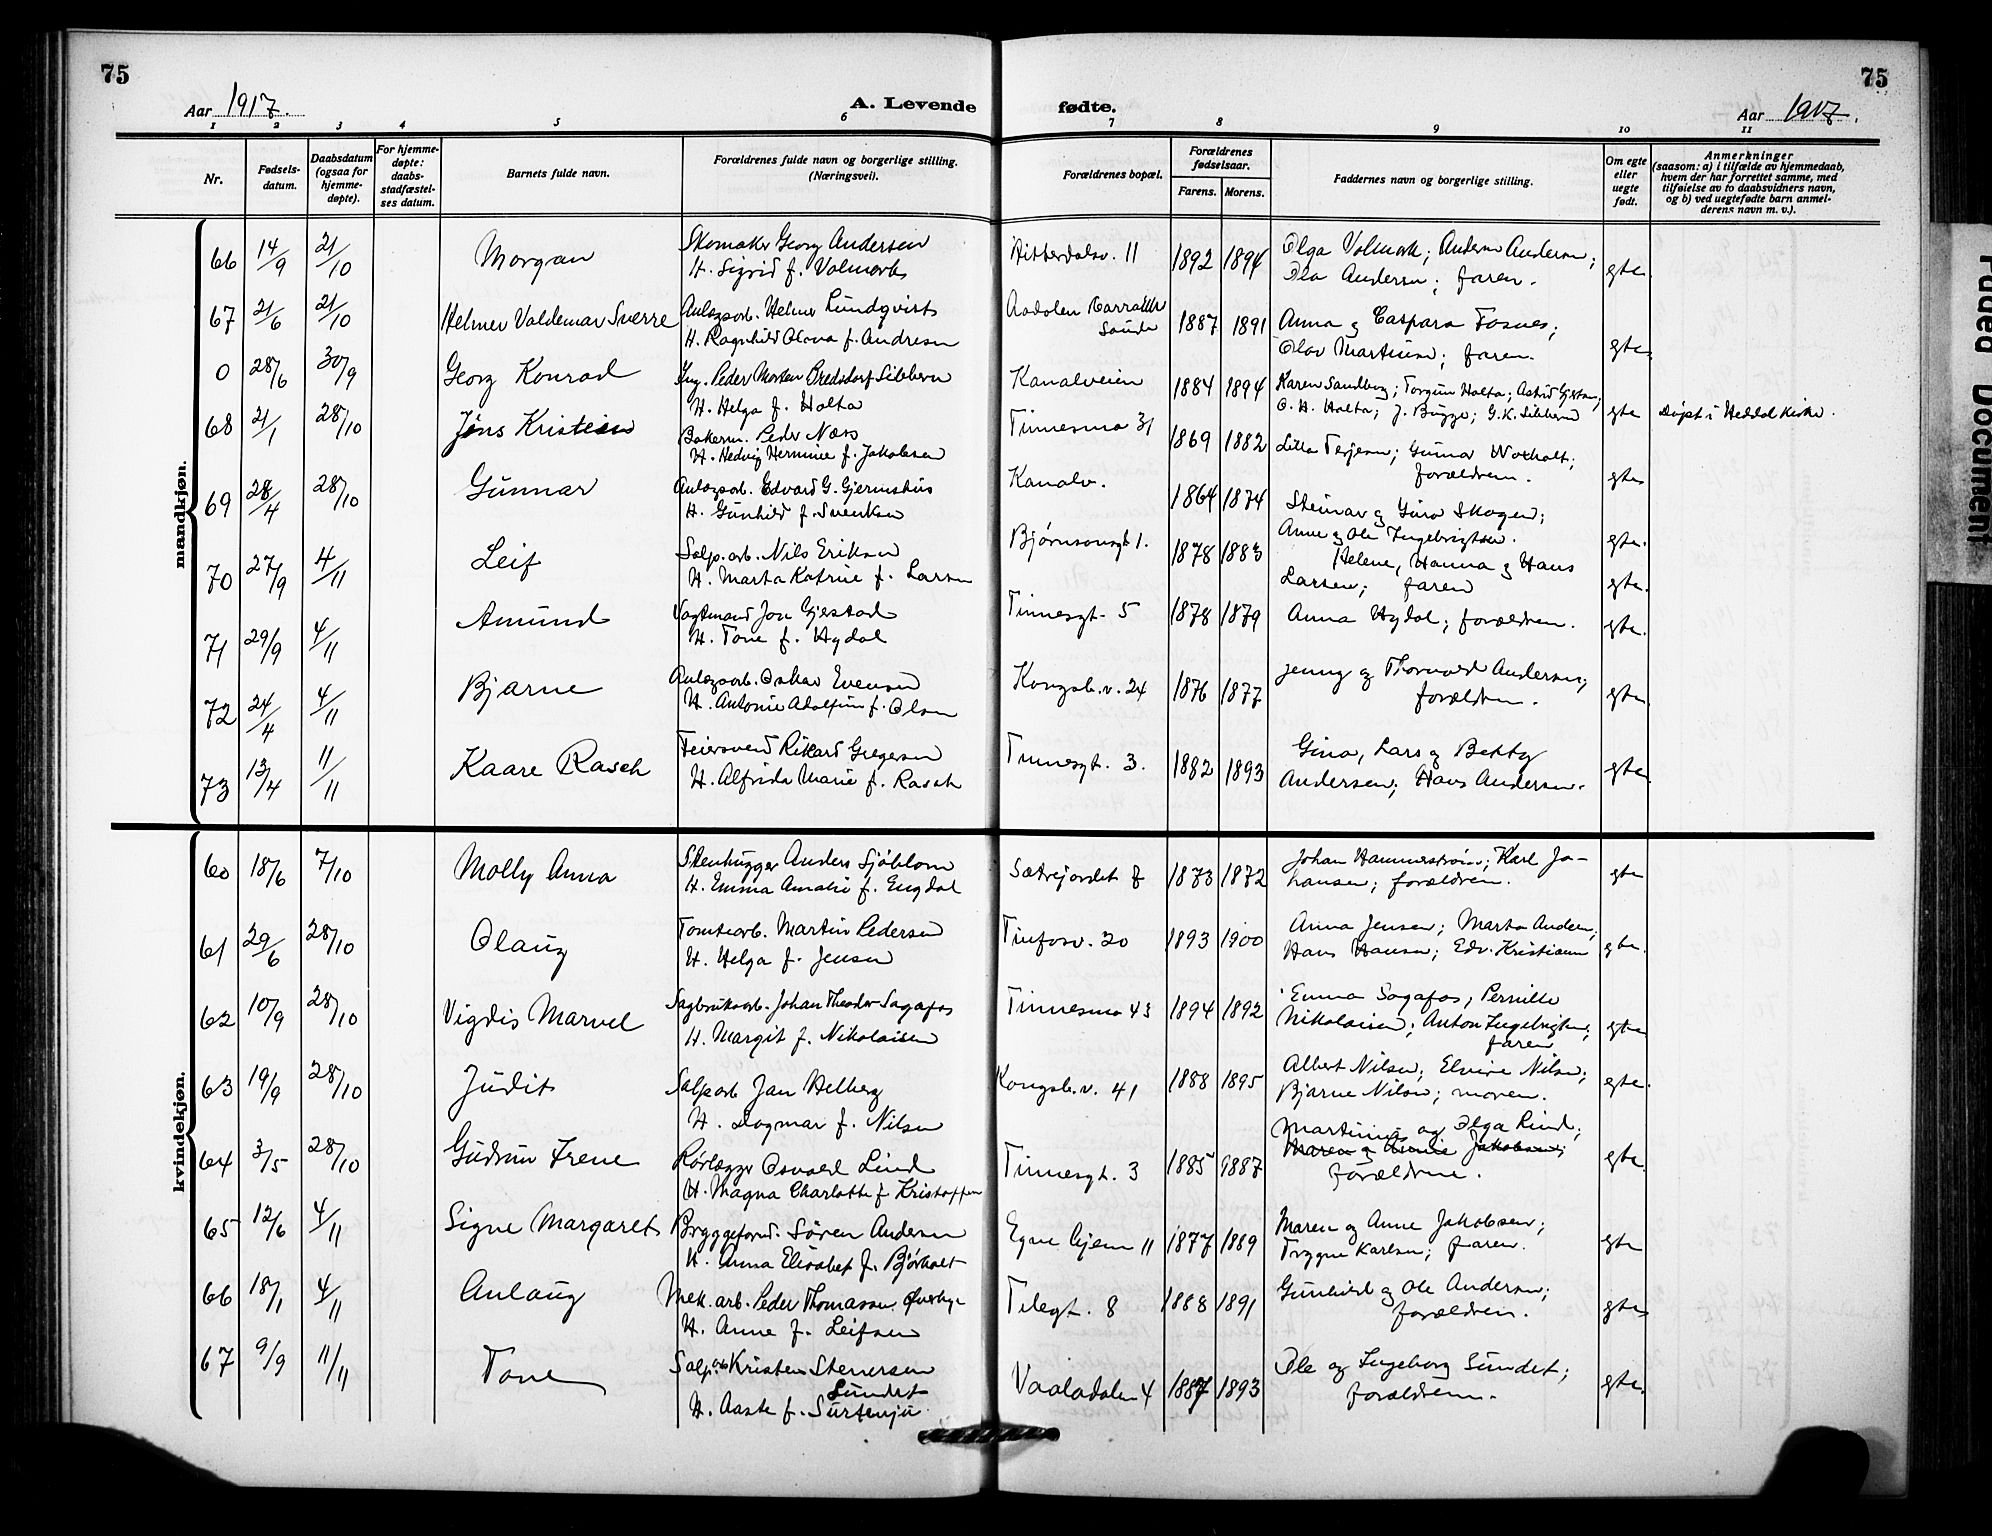 75
75
Aar 1917.
A. Levende fødte.
Aar 1917.
1 2 3 4 5 6 7 8 9 10 11
Nr.
Fødsels-
datum.
Daabsdatum
(ogsaa for
hjemme-
døpte).
For hjemme-
døpte:
daabs-
stadfæstel-
ses datum.
Barnets fulde navn.
Forældrenes fulde navn og borgerlige stilling.
(Næringsvei).
Forældrenes bopæl.
Forældrenes
fødselsaar.
Farens. Morens.
Faddernes navn og borgerlige stilling.
Om egte
eller
uegte
født.
Anmerkninger
(saasom: a) i tilfælde av hjemmedaab,
hvem der har forrettet samme, med
tilføielse av to daabsvidners navn,
og b) ved uegtefødte barn anmel-
derens navn m. v.).
mandkjøn.
66 14/9 21/10 Morgan Skomaker Georg Andersen Hitterdalsv. 11 1892 1894 Olga Volmark; Andern Andersn; egte
H. Sigrid f. Volmark Ola Andersn; faren.
67 21/6 21/10 Helmer Valdemar Sverre Anlægsarb. Helmer Lundqvist Aadalen 1887 1891 Anna og Caspara Fosnes; egte
H. Ragnhild Olava f. Andresen Olav Martinsen; faren.
0 28/6 30/9 Georg Konrad Ing. Peder Morten Bredsdorf Sibbern Kanalveien 1884 1894 Karen Sandberg; Torgun Holta; Astrid
H. Helga f. Holta O. H. Holta; J. Bugge; G. K. Sibbern egte Døpt i Heddal kirke.
68 21/1 28/10 Jens Kristian Bakerm. Peder Næss Tinnesmo 31 1869 1882 Lilla Terjesen; Gunnar egte
H. Hedvig Hermine f. Jakobsen forældren.
69 28/4 28/10 Gunnar Anlægsarb. Edvard G. Gjermshus Kanalv. 1864 1874 Steinar og Gina Skogen; egte
H. Gunhild f. Svenksen Anne og Ole Ingebrigtsen.
70 27/9 4/11 Leif Salp. arb. Nils Eriksen Bjørnsonsgt 1. 1878 1883 Helene, Hanna og Hans egte.
H. Marta Katrine f. Larsen Larsen; faren
71 29/9 4/11 Amund Vagtmand Jon Gjerstad Tinnesgt. 5 1878 1879 Anna Hydal; forældren. egte.
H. Tone f. Hydal
72 24/4 4/11 Bjarne Anlægsarb. Oskar Evensen Kongsb. v. 24 1876 1877 Jenny og Thorvald Andersen; egte.
H. Antonie Adolfine f. Olsen forældren.
73 13/4 11/11 Kaare Rasch Feiersvend Rikard Gregersen Tinnesgt. 3. 1882 1893 Gina, Lars og Betty egte.
H. Alfrida Marie f. Rasch Andersen; Hans Andersen.
kvindekjøn.
60 18/6 7/10 Molly Anna Stenhugger Anders Sjöblom Sætrejordet 1873 1872 Johan Hammerstrøm; Karl Jo- egte
H. Emma Amalie f. Engdal hansen; forældren.
61 29/6 28/10 Olaug Tomtearb. Martin Pedersen Tinfosv. 20 1893 1900 Anna Jensen; Marta Andersen; egte.
H. Helga f. Jensen Hans Hansen; Edv. Kristiansen
62 10/9 28/10 Vigdis Marvel Sagbruksarb. Johan Theodor Sagafos Tinnesmo 43 1894 1892 Emma Sagafos, Pernille egte
H. Margit f. Nikolaisen Nikolaisen; Anton Ingebrigtsen;
faren
63 19/9 28/10 Judit Salp arb Jan Helberg Kongsb. v. 41 1888 1895 Albert Nilsen; Elvire Nilsen; egte.
H. Dagmar f. Nilsen Bjarne Nilsen; moren.
64 3/5 28/10 Gudrun Irene Rørlægger Osvald Lind Tinnesgt. 3 1885 1887 Martinius og Olga Lind; egte.
H. Magna Charlotte f. Kristoffersen Maren og Annie Jakobsen;
forældrene.
65 12/6 4/11 Signe Margaret Bryggeform. Søren Andersen Egne hjem 11 1877 1889 Maren og Anne Jakobsen; egte
H. Anna Elisabet f. Bjørholt Trygve Karlsen; faren.
66 18/1 4/11 Anlaug Mek. arb. Peder Thomassen Øverby Telegt. 8 1888 1891 Gunhild og Ole Andersen; egte
H. Anne f. Leifsen forældren.
67 9/9 11/11 Tone Salp. arb Kristen Stenersen Vaaladalen 4 1887 1893 Ole og Ingeborg Sundet; egte.
Sundet forældrene.
H. Aaste f. Surtenju
Faded Document